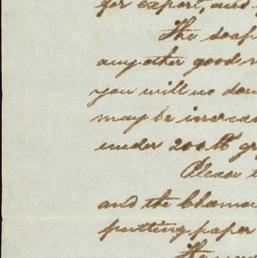 for export, and
The soap
any other good
you will no
may be increa
under 200 lb gr
Please
and the Chamo
putting paper
The